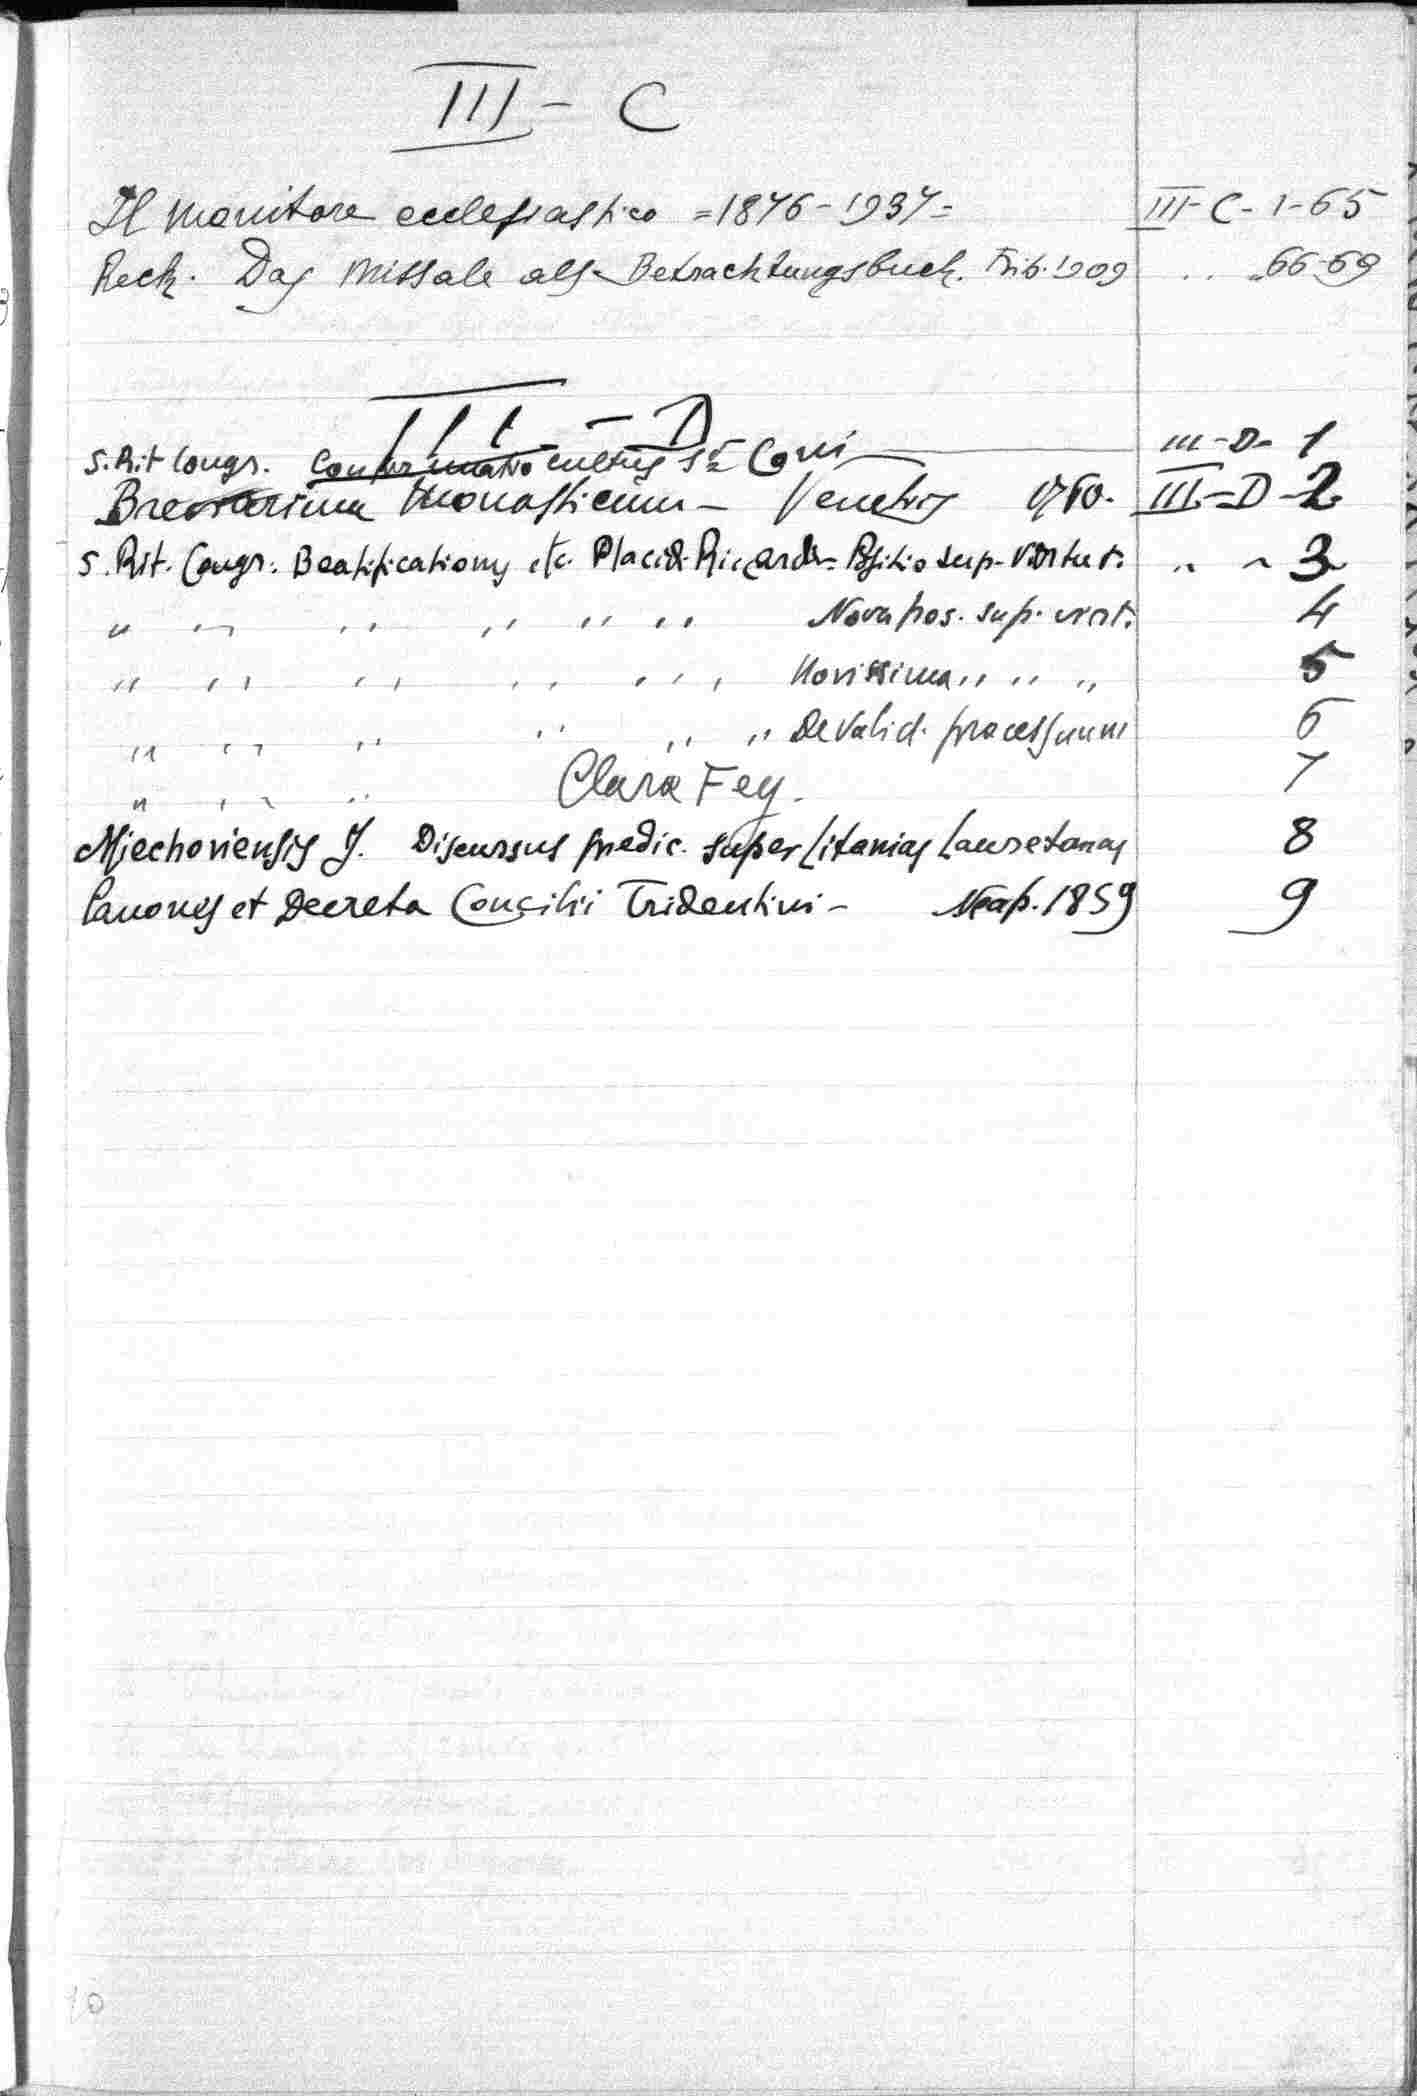 III - C
Il monitore ecclesiastico = 1876 - 1937 = III - C - 1 - 65
Reck. Das Missale als Betrachtungsbuch. Frib. 1909 " " 66-69
III - D
S. Rit Congr. Confirmatio cultus III - D - 1
Breviarium Monasticum - Venetiis III - D - 2
S. Rit. Congr. Beatificationis etc. Placid. Riccardi = Positio sup. Virtut. " " 3
" " " " " " Nova pos. sup. virt. 4
" " " " " " Novissima " " " 5
" " " " " " De Valid. processuum 6
" " " Clara Fey. 7
Miechoviensis J. Discursus predic. super Litanias Lauretanas 8
Canones et Decreta Concilii Tridentini - Neap. 1859 9
10